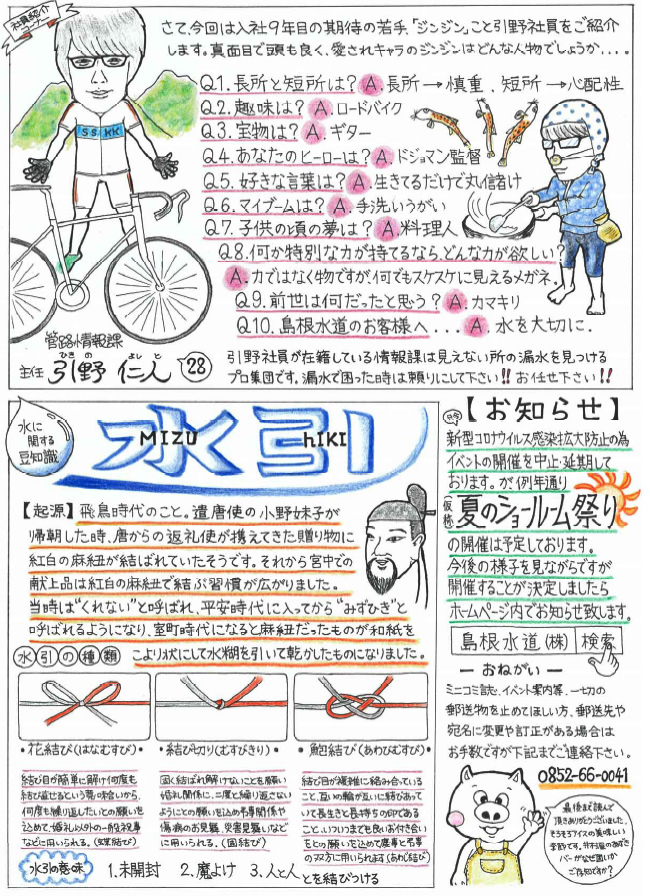 社員紹介
コーナー
さて、今回は入社9年目の期待の若手、「ジンジン」こと引野社員をご紹介
します。真面目で頭も良く、愛されキャラのジンジンはどんな人物でしょうか....
Q1.長所と短所は? A.長所→慎重、短所→心配性
Q2.趣味は? A.ロードバイク
Q3.宝物は? A.ギター
Q4.あなたのヒーローは? A.ドジョマン監督
Q5.好きな言葉は? A.生きてるだけで丸儲け
Q6.マイブームは? A.手洗いうがい
Q7.子供の頃の夢は? A.料理人
Q8.何か特別な力が持てるなら、どんな力が欲しい?
A.力ではなく物ですが、何でもスケスケに見えるメガネ。
Q9.前世は何だったと思う? A.カマキリ
Q10.島根水道のお客様へ... A.水を大切に.
SSKK
管路情報課
主任 引野 仁人 28
ひきの よしと
引野社員が在籍している情報課は見えない所の漏水を見つける
プロ集団です。漏水で困った時は頼りにして下さい!!お任せ下さい!!
水に
関する
豆知識
水引
MIZU hIKI
【起源】飛鳥時代のこと。遣唐使の小野妹子が
帰朝した時、唐からの返礼使が携えてきた贈り物に
紅白の麻紐が結ばれていたそうです。それから宮中での
献上品は紅白の麻紐で結ぶ習慣が広がりました。
当時は“くれない”と呼ばれ、平安時代に入ってから“みずひき”と
呼ばれるようになり、室町時代になると麻紐だったものが和紙を
こより状にして水糊を引いて乾かしたものになりました。
水引の種類
・花結び(はなむすび)・
・結び切り(むすびきり)・
・鮑結び(あわびむすび)・
結び目が簡単に解け何度も
結び直せるという意味合いから、
何度も繰り返したいとの願いを
込めて、婚礼以外の一般祝事
などに用いられる。(蝶結び)
固く結ばれ解けないことを願い
婚礼関係に、二度と繰り返さない
ようにとの願いを込め弔事関係や
傷病のお見舞、災害見舞いなど
に用いられる。(固結び)
結び目が複雑に絡み合っている
こと、互いの輪が互いに結びあって
いて長生きと長持ちの印である
こと、いついつまでも良いお付き合い
をとの願いを込めて慶事と弔事
の双方に用いられます(あわじ結び)
水引の意味 1.未開封 2.魔よけ 3.人と人とを結びつける
【お知らせ】
新型コロナウイルス感染拡大防止の為
イベントの開催を中止・延期して
おります。が例年通り
(仮称)夏のショールーム祭り
の開催は予定しております。
今後の様子を見ながらですが
開催することが決定しましたら
ホームページ内でお知らせ致します。
島根水道(株) 検索
ーおねがいー
ミニコミ誌た、イベント案内等、一切の
郵送物を止めてほしい方、郵送先や
宛名に変更や訂正がある場合は
お手数ですが下記までご連絡下さい。
0852-66-0041
最後まで読んで
頂きありがとうございました。
そろそろアイスの美味しい
季節です。井村屋のあずき
バーがなぜ固いか
ご存知ですか?